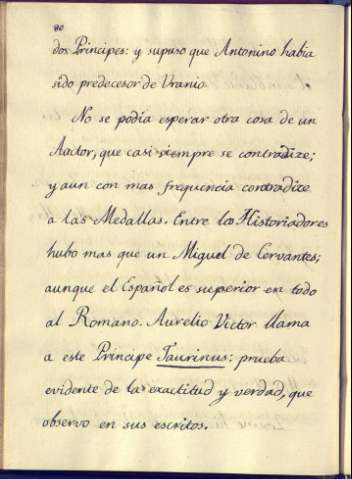 80
dos Principes: y supuso que Antonino habia
sido predecesor de Uranio
No se podia esperar otra cosa de un
Aactor, que casi siempre se contradize;
y aun con mas frequencia contradize
a las Medallas. Entre los Historiadores
hubo mas que un Miguel de Cervantes;
aunque el Español es superior en todo
al Romano. Aurelio Victor llama
a este Principe Taurinus: prueba
evidente de la exactitud y verdad, que
observo en sus escritos.